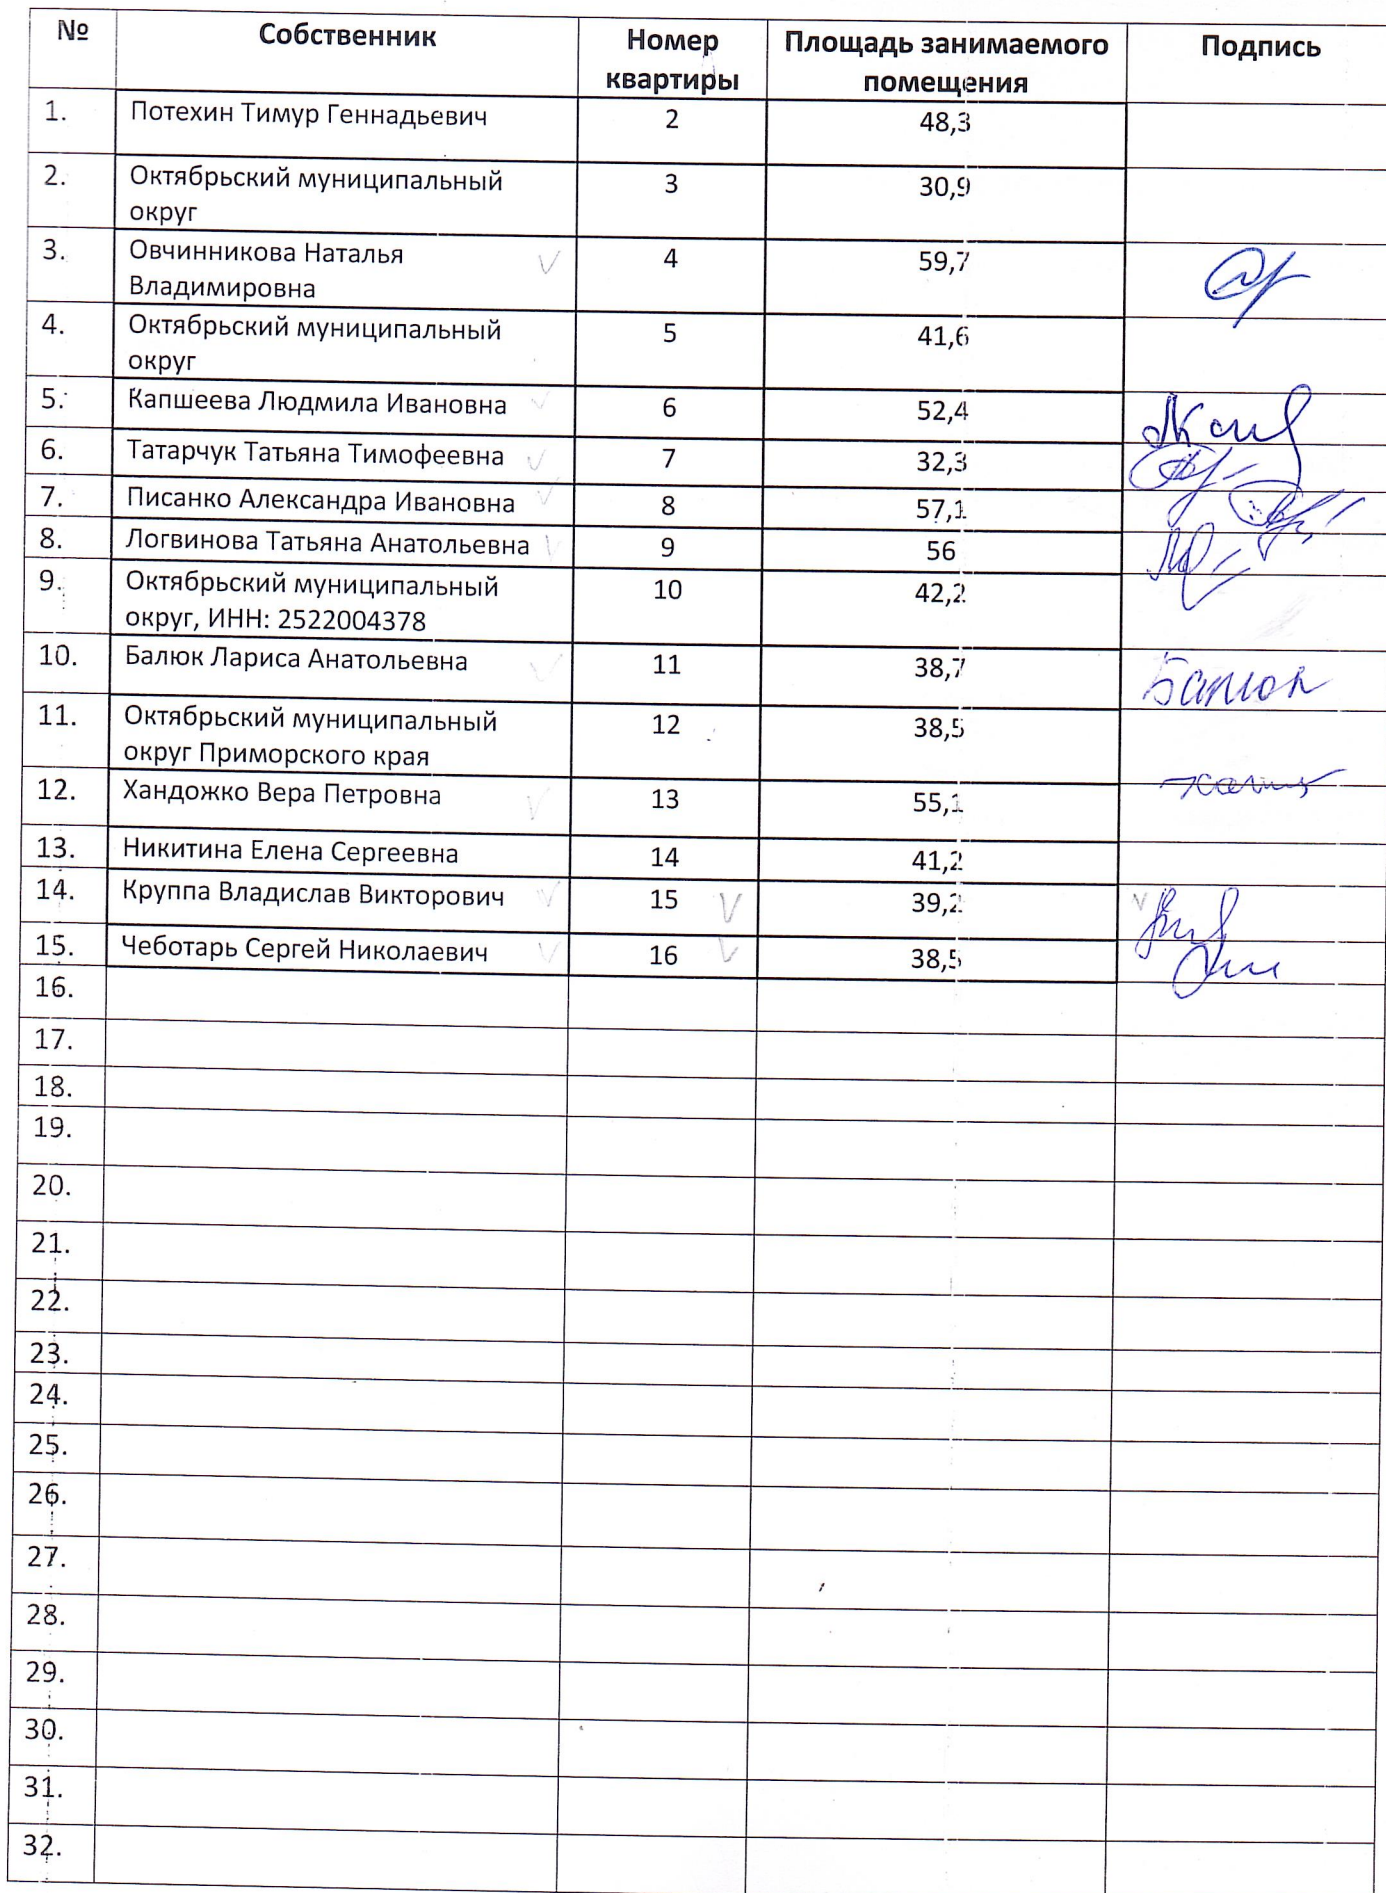 № Собственник Номер квартиры Площадь занимаемого помещения Подпись
1. Потехин Тимур Геннадьевич 2 48,3
2. Октябрьский муниципальный 3 30,9
округ
3. Овчинникова Наталья 4 59,7
Владимировна
4. Октябрьский муниципальный 5 41,6
округ
5. Капшеева Людмила Ивановна 6 52,4
6. Татарчук Татьяна Тимофеевна 7 32,3
7. Писанко Александра Ивановна 8 57,1
8. Логвинова Татьяна Анатольевна 9 56
9. Октябрьский муниципальный 10 42,2
округ, ИНН: 2522004378
10. Балюк Лариса Анатольевна 11 38,7 Балюк
11. Октябрьский муниципальный 12 38,5
округ Приморского края
12. Хандожко Вера Петровна 13 55,1
13. Никитина Елена Сергеевна 14 41,2
14. Круппа Владислав Викторович 15 39,2
15. Чеботарь Сергей Николаевич 16 38,5
16.
17.
18.
19.
20.
21.
22.
23.
24.
25.
26.
27.
28.
29.
30.
31.
32.